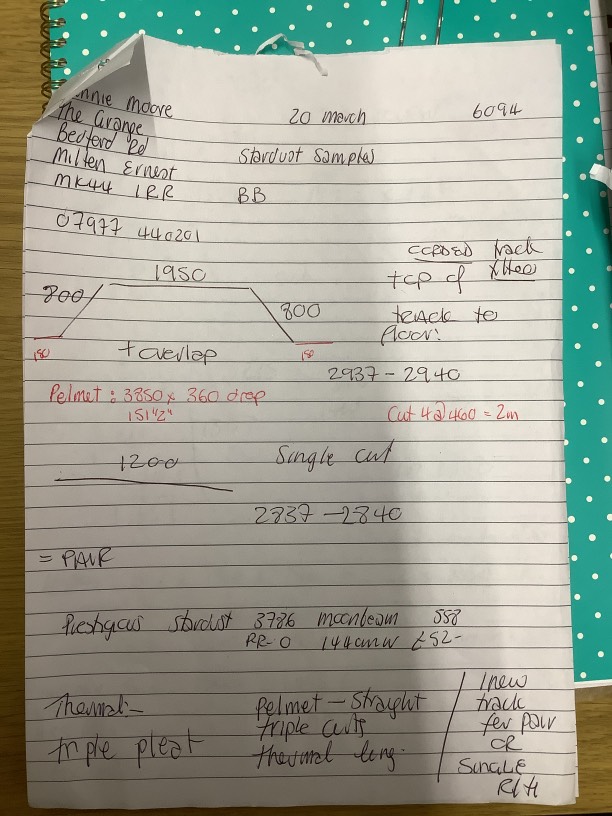 nnie Moore 20 March 6094
The Grange
Bedford Rd
Milten Ernest Stardust Samples
MK44 1RR BB
07977 440201
CORDED track
1950 top of
800 800 track to
floor:
150 + overlap 150
2937 - 2940
Pelmet: 3850 x 360 drop
151"2" Cut 4@460 = 2m
1200 Single cut
2837 - 2840
= PAIR
Prestigious Stardust 3786 moonbeam 558
RR-0 144cmw £52-
Thermal:-
triple pleat
Pelmet - Straight
triple cuts
thermal
1 new
track
for pair
OR
Single
R/H